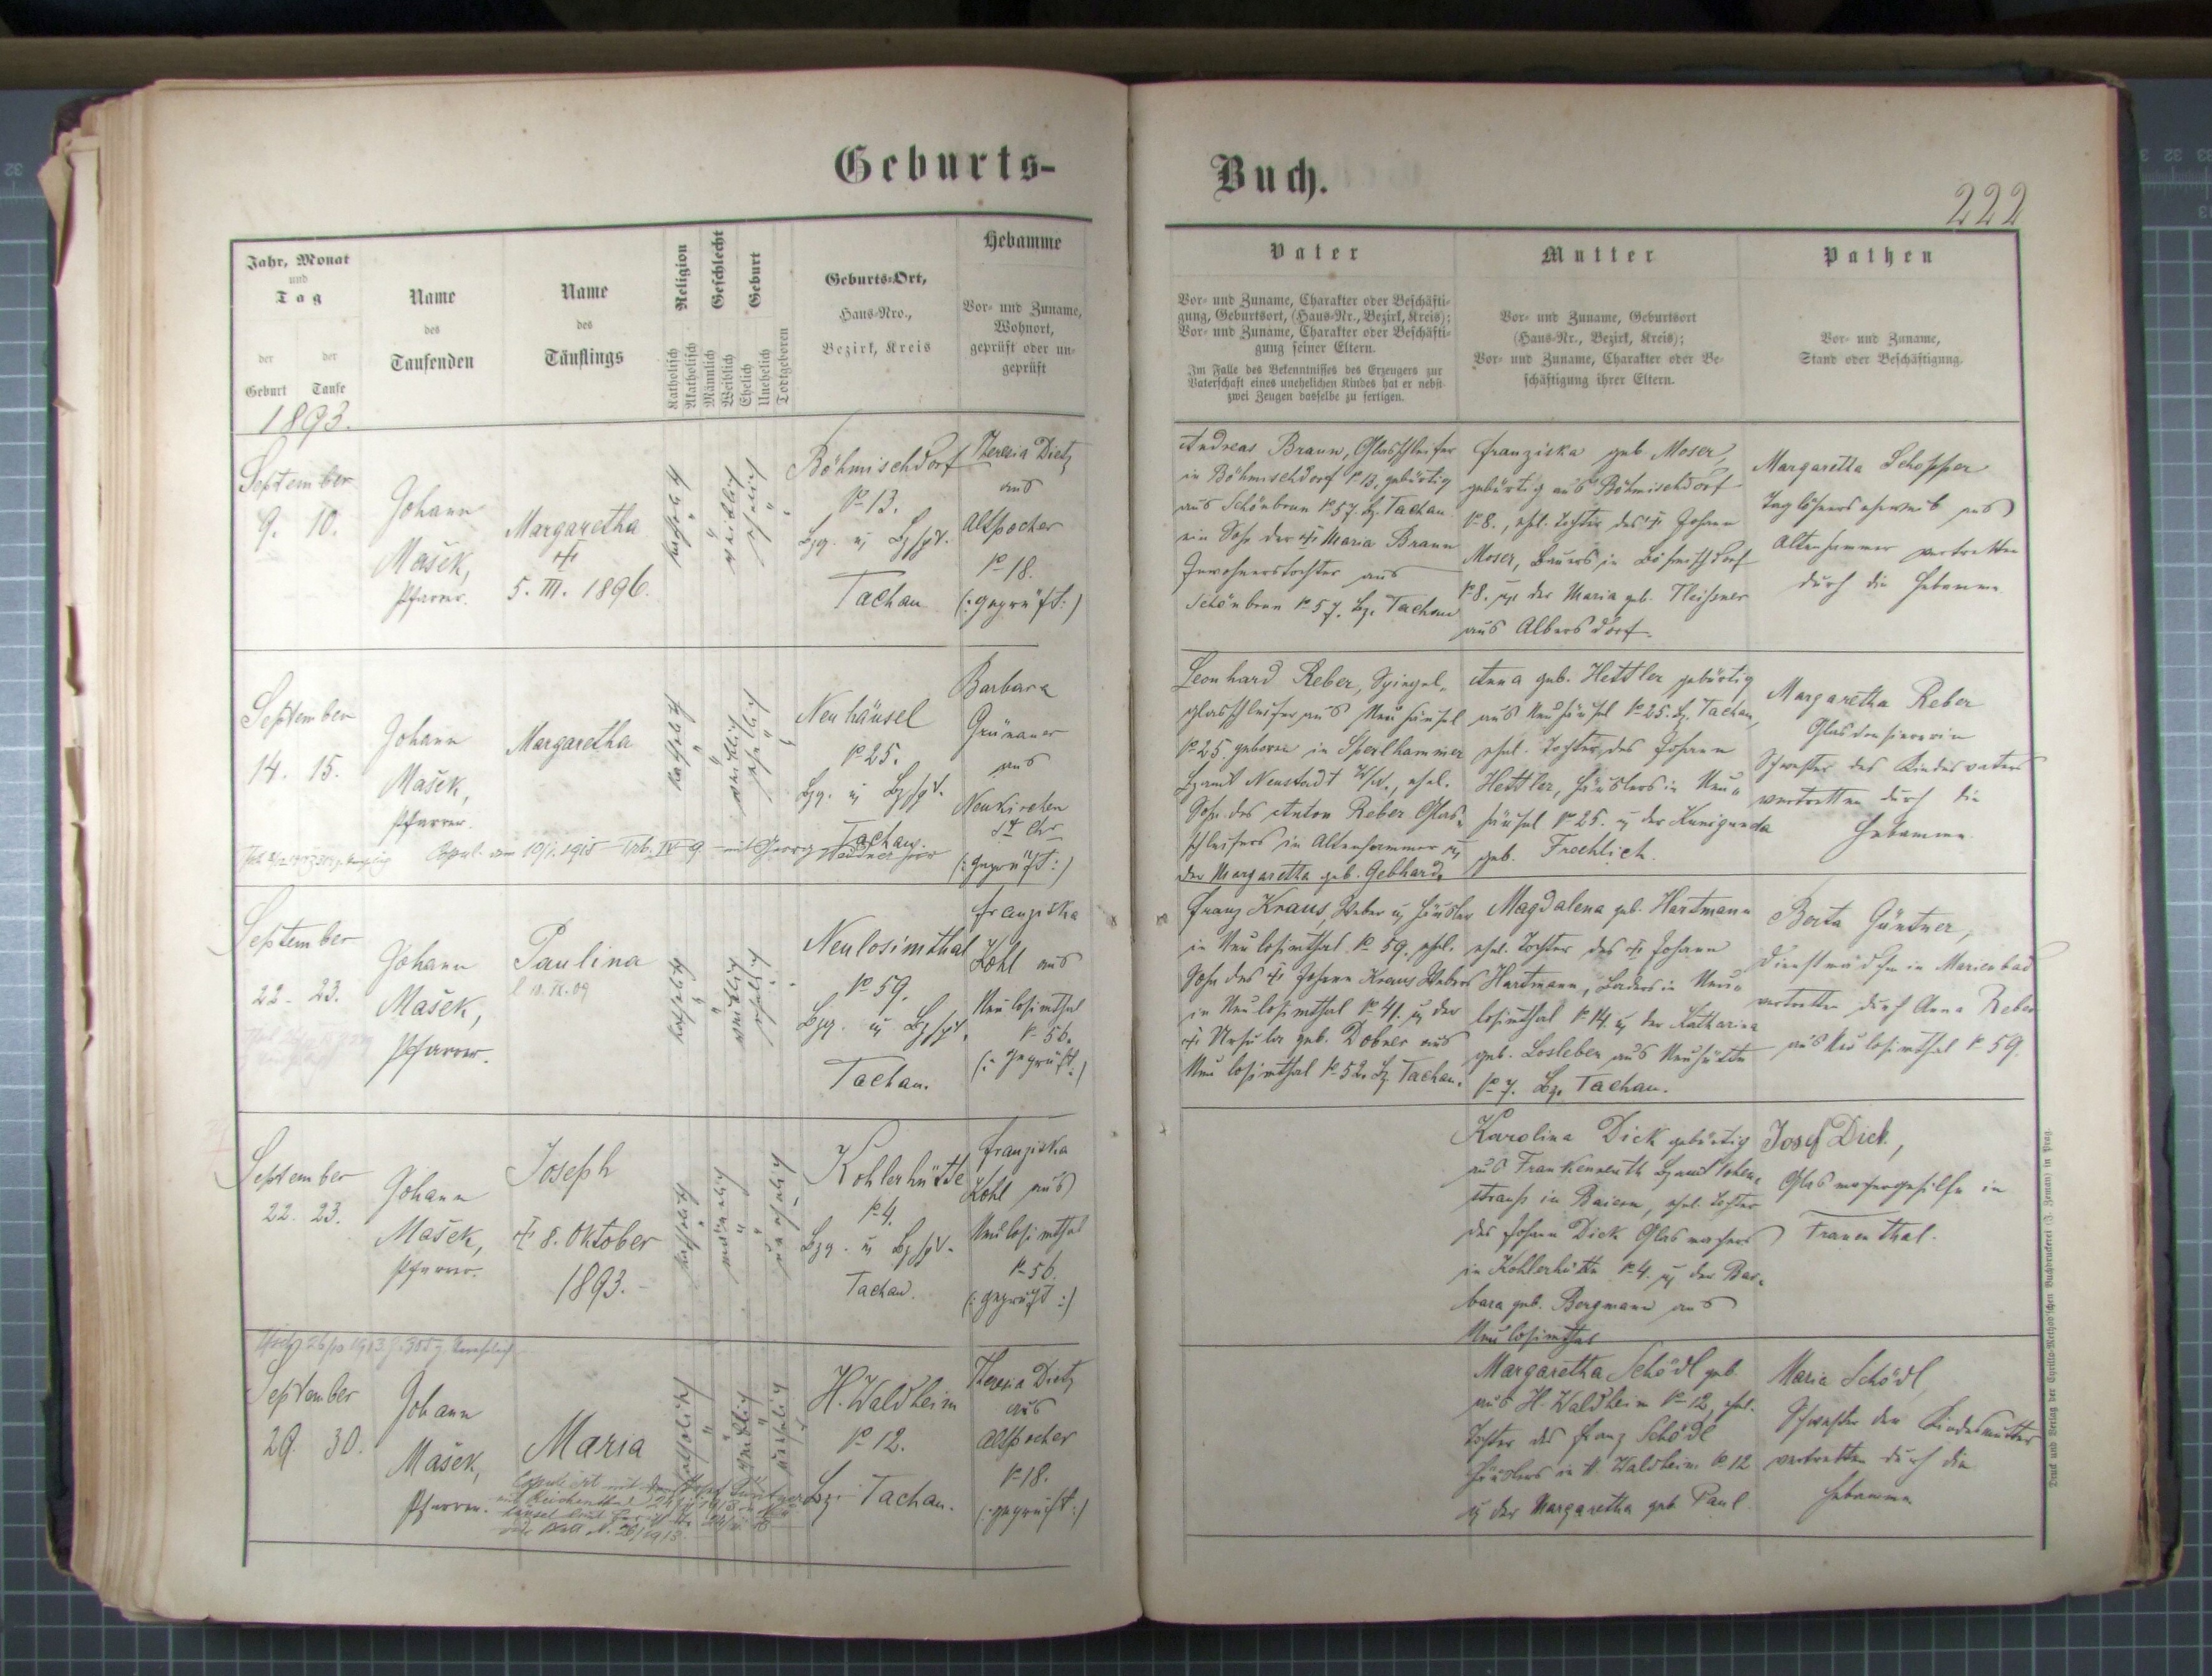 Geburts-
Buch.
222
Jahr, Monat
und
Tag
der Geburt
der Taufe
Name
des
Taufenden
Name
des
Täuflings
Religion
Katholisch
Akatholisch
Geschlecht
Männlich
Weiblich
Geburt
Ehelich
Unehelich
Todtgeboren
Geburts-Ort,
Haus-Nro.,
Bezirk, Kreis
Hebamme
Vor- und Zuname,
Wohnort,
geprüft oder un-
geprüft
Vater
Vor- und Zuname, Charakter oder Beschäfti-
gung, Geburtsort, (Haus-Nr., Bezirk, Kreis);
Vor- und Zuname, Charakter oder Beschäfti-
gung seiner Eltern.
Im Falle des Bekenntnisses des Erzeugers zur
Vaterschaft eines unehelichen Kindes hat er nebst
zwei Zeugen dasselbe zu fertigen.
Mutter
Vor- und Zuname, Geburtsort
(Haus-Nr., Bezirk, Kreis);
Vor- und Zuname, Charakter oder Be-
schäftigung ihrer Eltern.
Pathen
Vor- und Zuname,
Stand oder Beschäftigung.
1893.
September
9. 10.
Johann
Mašek,
Pfarrer.
Margaretha
†
5. III. 1896.
katholisch
weiblich
ehelich
Böhmischdorf
No 13.
Bzg. u. Bzhpt.
Tachau
Theresia Dietz
aus
Altpocher
No 18.
(: geprüft :)
Andreas Braun, Glasschleifer
in Böhmischdorf No 13, gebürtig
aus Schönbrun No 57. Bz. Tachau
ein Sohn der † Maria Braun
Inwohnerstochter aus
Schönbrun No 57. Bz. Tachau
Franziska geb. Moser,
gebürtig aus Böhmischdorf
No 8., ehel. Tochter des † Johann
Moser, Bauers in Böhmischdorf
No 8. u. der Maria geb. Fleißner
aus Albersdorf.
Margaretta Schopper
Taglöhnerseheweib aus
Altenhammer vertretten
durch die Hebamme
September
14. 15.
Johann
Mašek,
Pfarrer.
Margaretha
katholisch
weiblich
ehelich
Neuhäusel
No 25.
Bzg. u. Bzhpt.
Tachau.
Copul. am 10/1. 1915 Trb. IV 9 mit Georg
Barbara
Grünauer
aus
Neukirchen
St. Chr
(: geprüft :)
Leonhard Reber, Spiegel-
glasschleifer aus Neuhäusel
No 25. geboren in Sperlhammer
Bzamt Neustadt W/N., ehel.
Sohn des Anton Reber Glas-
schleifers in Altenhammer u.
der Margaretta geb. Gebhard.
Anna geb. Hettler gebürtig
aus Neuhäusel No 25. Bz. Tachau,
ehel. Tochter des Johann
Hettler, Häuslers in Neu-
häusel No 25. u. der Kunigunda
geb. Froehlich.
Margaretha Reber
Schwester des Kindesvaters
vertretten durch die
Hebamme.
September
22. 23.
Johann
Mašek,
Pfarrer.
Paulina
katholisch
weiblich
ehelich
Neulosimthal
No 59.
Bzg. u. Bzhpt.
Tachau.
Franziska
Kohl aus
Neulosimthal
No 56.
(: geprüft :)
Franz Kraus, Weber u. Häusler
in Neulosimthal No 59, ehel.
Sohn des † Johann Kraus Webers
in Neulosimthal No 41. u. der
† Ursula geb. Dobner aus
Neulosimthal No 52. Bz. Tachau.
Magdalena geb. Hartmann
ehel. Tochter des † Johann
Hartmann, Baders in Neu-
losimthal No 14. u. der Katharina
geb. Losleben aus Neuhütte
No 7. Bz. Tachau.
Berta Güntner,
Dienstmädchen in Marienbad
vertretten durch Anna Reber
aus Neulosimthal No 59.
September
22. 23.
Johann
Mašek,
Pfarrer.
Joseph
† 8. Oktober
1893.
katholisch
männlich
unehelich
Kohlerhütte
No 4.
Bzg. u. Bzhpt.
Tachau.
Franziska
Kohl aus
Neulosimthal
No 56.
(: geprüft :)
Karolina Dick gebürtig
aus Frankenreuth Bzamt Vohen-
strauß in Baiern, ehel. Tochter
des Johann Dick Glasmachers
in Kohlerhütte No 4. u. der Bar-
bara geb. Bergmann aus
Neulosimthal
Josef Dick,
Glasmachergehilfe in
Frauenthal.
September
29. 30.
Johann
Mašek,
Pfarrer.
Maria
katholisch
weiblich
unehelich
H. Waldheim
No 12.
Bz. Tachau.
Theresia Dietz
aus
Altpocher
No 18.
(: geprüft :)
Margaretha Schödl geb.
aus H. Waldheim No 12, ehel.
Tochter des Franz Schödl
Häuslers in H. Waldheim No 12
u. der Margaretha geb. Paul.
Maria Schödl
Schwester der Kindesmutter
vertretten durch die
Hebamme
Druck und Verlag der Cyrillo-Method'schen Buchdruckerei (J. Zeman) in Prag.